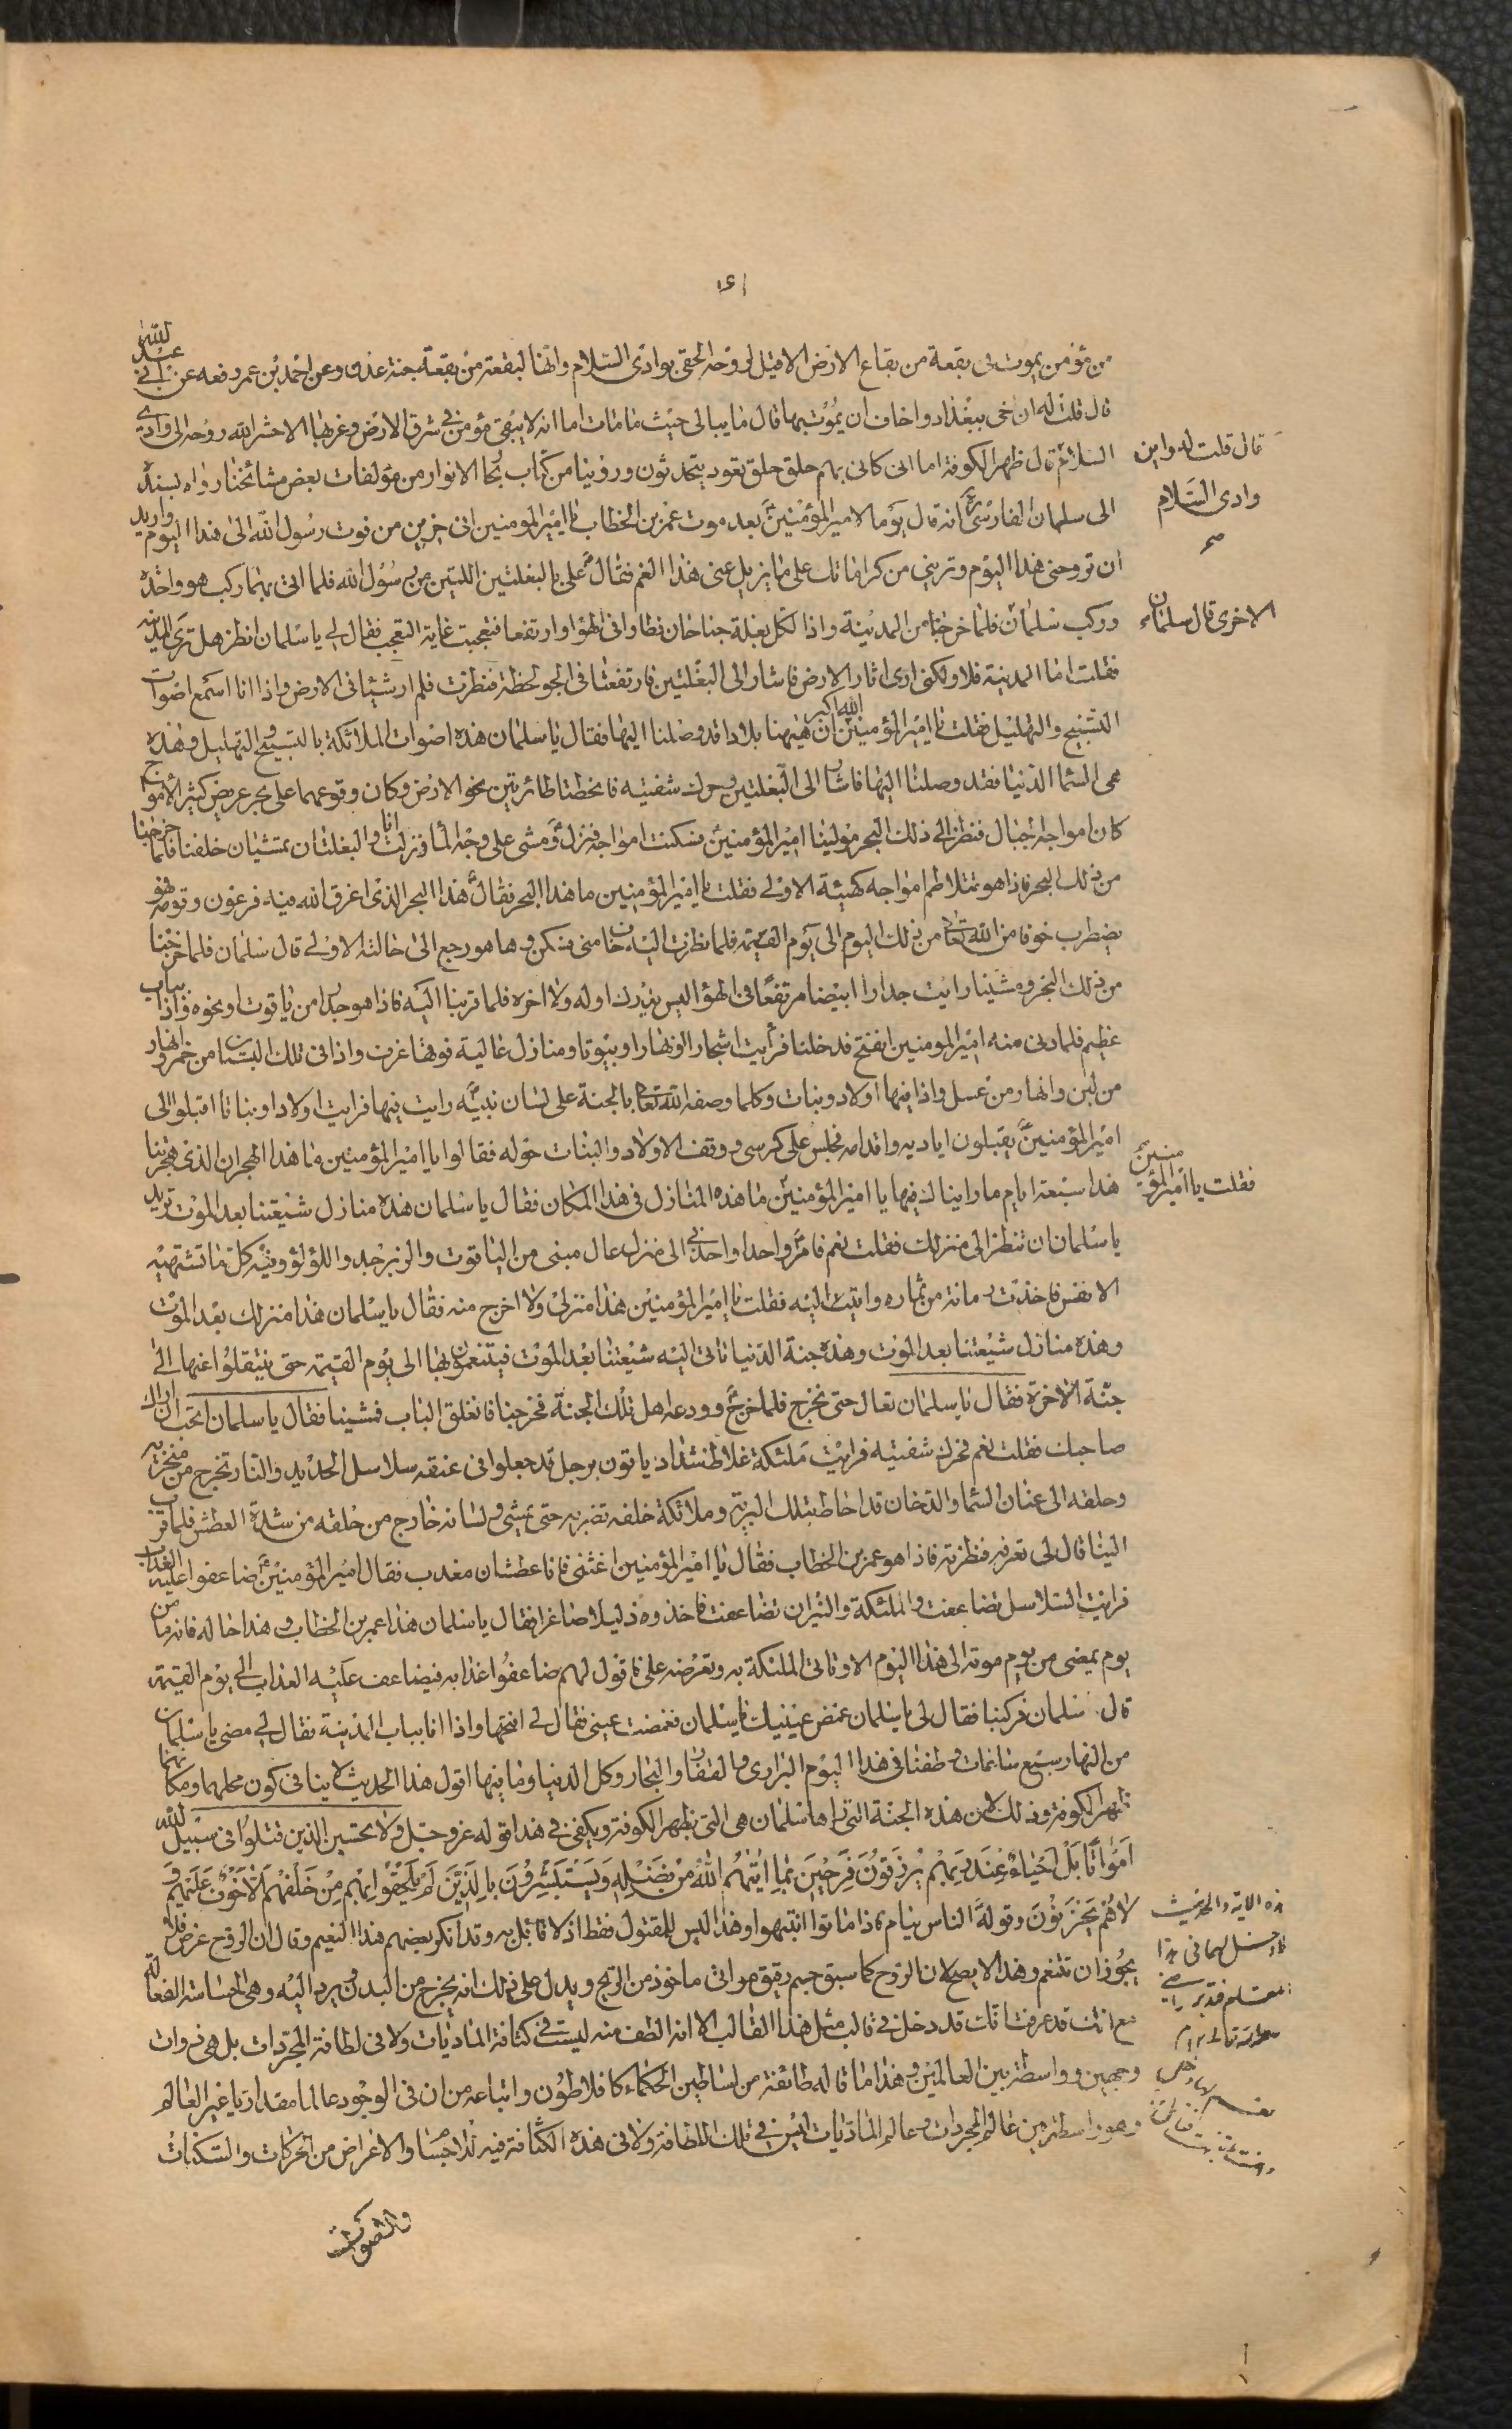 ١٤١
من مؤمن يموت فى بقعة من بقاع الارض الا قيل لروحه الحقى بوادى السلام وانها لبقعة من بقعة جنة عدن وعن احمد بن عمر رفعه عن ابى عبد الله
قال قلت له ان اخى ببغداد واخاف ان يموت بها قال ما يبالى حيث ما مات اما انه لا يبقى مؤمن فى شرق الارض وغربها الا حشر الله روحه الى وادى
السلام قال ظهر الكوفة اما انى كانى بهم حلق حلق قعود يتحدثون وروينا من كتاب بحار الانوار من مؤلفات بعض مشائخنا رواه بسنده
الى سلمان الفارسى انه قال يوما لامير المؤمنين بعد موت عمر بن الخطاب يا امير المومنين انى حزين من فوت رسول الله الى هذا اليوم واريد
ان تروحنى هذا اليوم وترينى من كراماتك على ما يزيل عنى هذا الغم فقال على بالبغلتين اللتين من رسول الله فلما اتى بهما ركب هو واحدة
وركب سلمان فلما خرجنا من المدينة واذا لكل بغلة جناحان فطاوا فى الهوا وارتفعا فتعجبت غاية التعجب فقال لى يا سلمان انظر هل ترى المدينه
فقلت اما المدينة فلا ولكنى ارى اثار الارض فاشار الى البغلتين فارتفعتا فى الجو لحظة فنظرت فلم ار شيئا فى الارض واذا انا اسمع اصوات
التسبيح والتهليل فقلت يا امير المؤمنين الله اكبر ان هيهنا بلادا قد وصلنا اليها فقال يا سلمان هذه اصوات الملائكة بالتسبيح والتهليل وهذه
هى السما الدنيا فقد وصلنا اليها فاشار الى البغلتين وحرك شفتيه فانحطتا طائرتين نحو الارض وكان وقوعهما على بحر عريض كثير الامواج
كان امواجه الجبال فنظر الى ذلك البحر مولينا امير المؤمنين فسكنت امواجه فنزل ومشى على وجه الما ونزلت انا والبغلتان تمشيان خلفنا فلما خرجنا
من ذلك البحر فاذا هو تتلاطم امواجه كهيئة الاولى فقلت يا امير المؤمنين ما هذا البحر فقال هذا البحر الذى اغرق الله فيه فرعون وقومه فهو
يضطرب خوفا من الله تعالى من ذلك اليوم الى يوم القيمة فلما نظرت اليه خاف منى فسكن وها هو رجع الى حالته الاولى قال سلمان فلما خرجنا
من ذلك البحر ومشينا رايت جدارا ابيضا مرتفعا فى الهوا ليس يدرك اوله ولا اخره فلما قربنا اليه فاذا هو جدار من ياقوت او نحوه واذا بباب
عظيم فلما دنى منه امير المومنين انفتح فدخلنا فرأيت اشجارا وانهارا وبيوتا ومنازل عالية فوقها غرف واذا فى تلك البستان من خمر وانهار
من لبن وانهار من عسل واذا فيها اولاد وبنات وكلما وصفه الله تعالى بالجنة على لسان نبيه رايت فيها فرايت اولادا وبناتا اقبلوا الى
امير المؤمنين يقبلون اياديه واقدامه فجلس على كرسى ووقف الاولاد والبنات حوله فقالوا يا امير المؤمنين ما هذا الهجران الذى هجرتنا
هذا سبعة ايام ما راينا لك فيها يا امير المؤمنين ما هذه المنازل فى هذا المكان فقال يا سلمان هذه منازل شيعتنا بعد الموت تريد
يا سلمان ان تنظر الى منزلك فقلت نعم فامر واحدا واخذنى الى منزل عال مبنى من الياقوت والزبرجد واللؤلؤ وفيه كل ما تشتهيه
الانفس فاخذت رمانة من ثماره واتيت اليه فقلت يا امير المؤمنين هذا منزلى ولا اخرج منه فقال يا سلمان هذا منزلك بعد الموت
وهذه منازل شيعتنا بعد الموت وهذه جنة الدنيا تاتى اليه شيعتنا بعد الموت فيتنعمون بها الى يوم القيمة حتى ينتقلوا عنها الى
جنة الاخرة فقال يا سلمان تعال حتى نخرج فلما خرج وودعه اهل تلك الجنة فخرجنا فانغلق الباب فمشينا فقال يا سلمان اتحب ان اراك
صاحبك فقلت نعم فحرك شفتيه فرايت ملئكة غلاظ شداد ياتون برجل قد جعلوا فى عنقه سلاسل الحديد والنار تخرج من منخريه
وحلقه الى عنان السما والدخان قد احاط بتلك البرية وملائكة خلفه تضربه حتى يمشى ولسانه خارج من حلقه من شدة العطش فلما قرب
الينا قال لى تعرفه فنظرته فاذا هو عمر بن الخطاب فقال يا امير المؤمنين اغثنى فانا عطشان معذب فقال امير المؤمنين ضاعفوا عليه العذاب
فرايت السلاسل تضاعفت والملئكة والنيران تضاعفت فاخذوه ذليلا صاغرا فقال يا سلمان هذا عمر بن الخطاب وهذا حاله فانه ما من
يوم يمضى من يوم موته الى هذا اليوم الا وتاتى الملئكة به وتعرضه على فاقول لهم ضاعفوا عذابه فيضاعف عليه العذاب الى يوم القيمة
قال سلمان فركبنا فقال لى يا سلمان غمض عينيك يا سلمان فغمضت عينى فقال لى افتحها واذا انا بباب المدينة فقال لى مضى يا سلمان
من النهار سبع ساعات وطفنا فى هذا اليوم البرارى والقفار والبحار وكل الدنيا وما فيها اقول هذا الحديث لا ينافى كون محلهما ومكانهما
ظهر الكوفة وذلك لان هذه الجنة التى راها سلمان هى التى بظهر الكوفة ويكفى فى هذا قوله عز وجل ولا تحسبن الذين قتلوا فى سبيل الله
امواتا بل احياء عند ربهم يرزقون فرحين بما اتيهم الله من فضله ويستبشرون بالذين لم يلحقوا بهم من خلفهم الا خوف عليهم و
لا هم يحزنون وقوله الناس نيام فاذا ماتوا انتبهوا وهذا ليس للمقتول فقط اذ لا قائل به وقد انكر بعضهم هذا النعيم وقال ان الروح عرض فلا
يجوز ان تتنعم وهذا لا يصح لان الروح كما سبق جسم رقيق هوائى ماخوذ من الريح ويدل على ذلك انه يخرج من البدن ويرد اليه وهى الحساسة الفعالة
مع انك قد عرفت انك قد دخل فى قالب مثل هذا القالب الا انه الطف منه ليست فى كثافة الماديات ولا فى لطافة المجردات بل هى ذوات
وجهين وواسطة بين العالمين وهذا ما قاله طائفة من اساطين الحكماء كافلاطون واتباعه من ان فى الوجود عالما مقداريا غير العالم
وهو واسطة بين عالم المجردات وعالم الماديات ليس فى تلك اللطافة ولا فى هذه الكثافة فيه للاجسام والاعراض من الحركات والسكنات
والصوات
قال قلت له واين
وادى السلام
صح
الاخرى قال سلمان
فقلت يا امير المؤمنين
هذه الاية والحديث